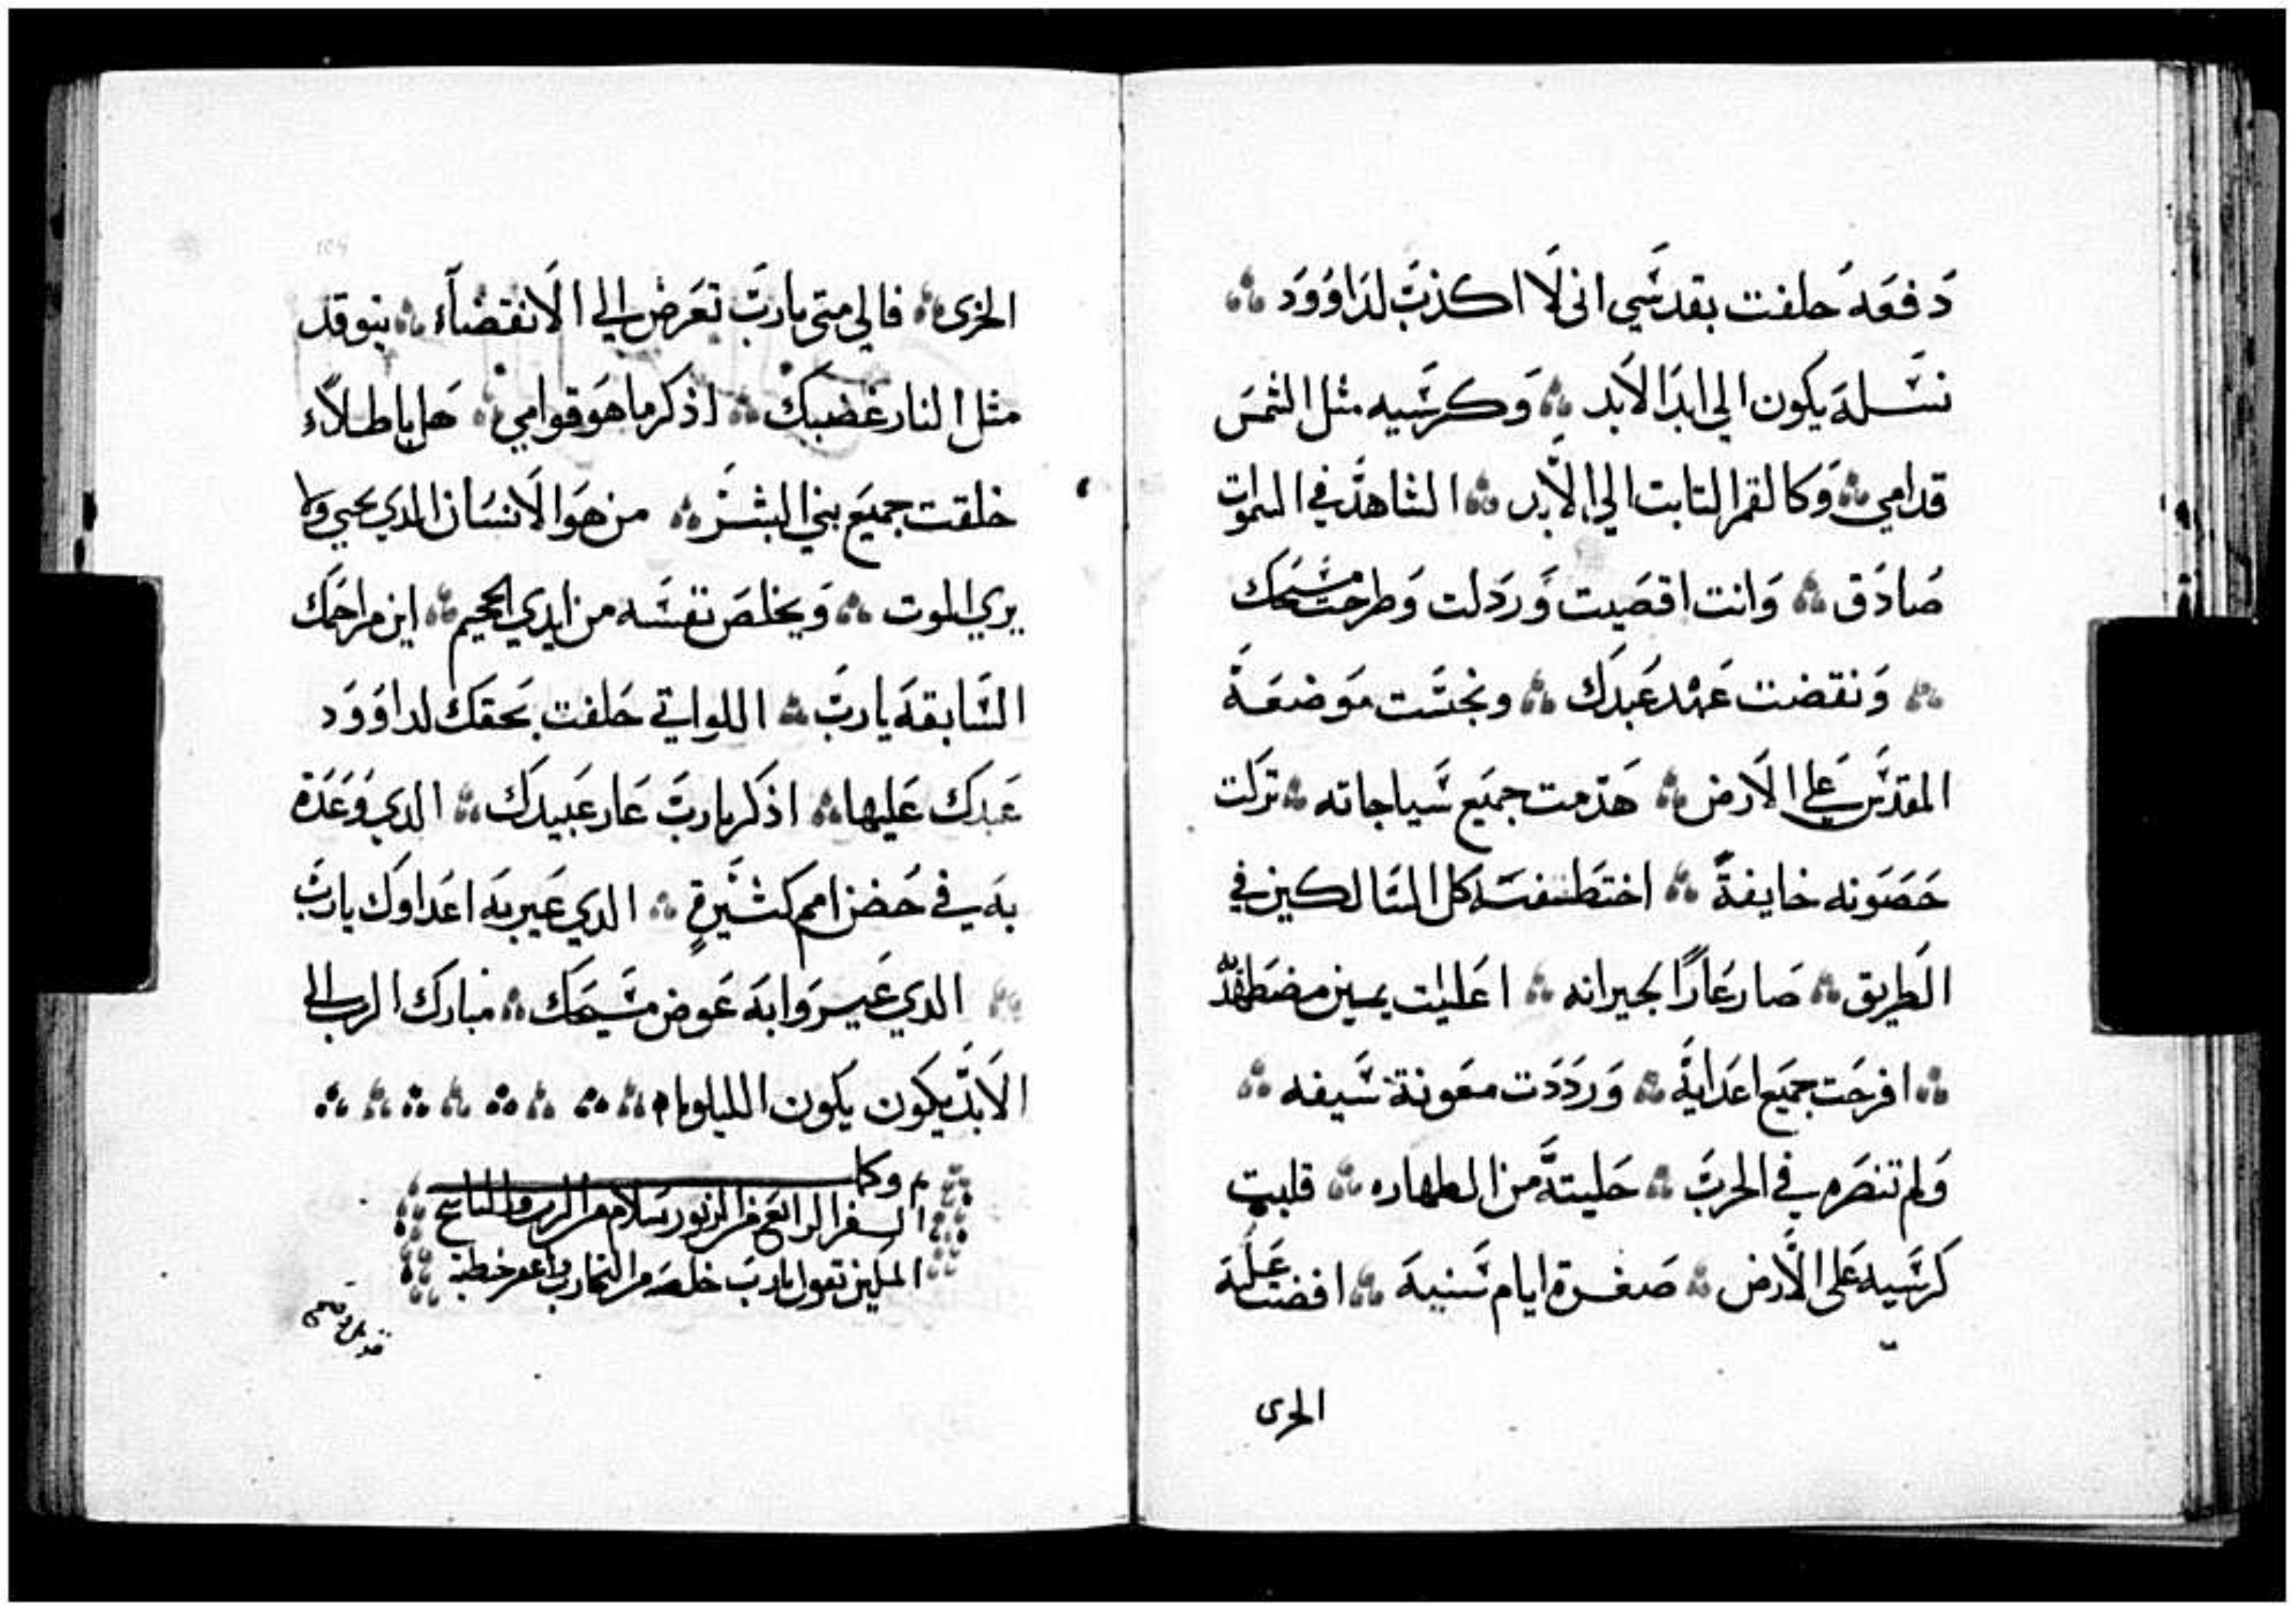 دفعه حلفت بقدسي اني لا اكذب لداوود
نسله يكون الي ابد الابد وكرسيه مثل الشمس
قدامي وكالقمر التابت الي الابد الشاهد في السموات
صادق وانت اقصيت وردلت وطرحت مسيحك
ونقضت عهد عبدك ونجست موضعة
المقدس علي الارض هدمت جميع سياجاته تركت
حصونه خايفة اختطنفته كل السالكين في
الطريق صار عارا لجيرانه اعليت يمين مضطهديه
افرحت جميع اعدايه ورددت معونة سيفه
ولم تنصره في الحرب حليته من الطهاره قلبت
كرسيه على الارض صغرة ايام سنيه افضت عليه
الخزى
الخزى فالي متى يارب تعرض الي الانقضاء يتوقد
مثل النار غضبك اذكر ما هو قوامي هل باطلاء
خلقت جميع بني البشر من هو الانسان الدي يحيي ولا
يري الموت ويخلص نفسه من ايدي الجحيم اين مراحمك
السابقه يارب اللواتي حلفت بحقك لداوود
عبدك عليها اذكر يارب عار عبيدك الدي وعدة
به في حضن امم كثيرة الدي عير به اعداوك يارب
الدي عيروا به عوض مسيحك مبارك الرب الي
الابد يكون يكون الليلويا
وكل
السفر الرابع من الزبور سلام من الرب والناسخ
المسكين تقول يارب خلصه من التجارب واغفر خطيته